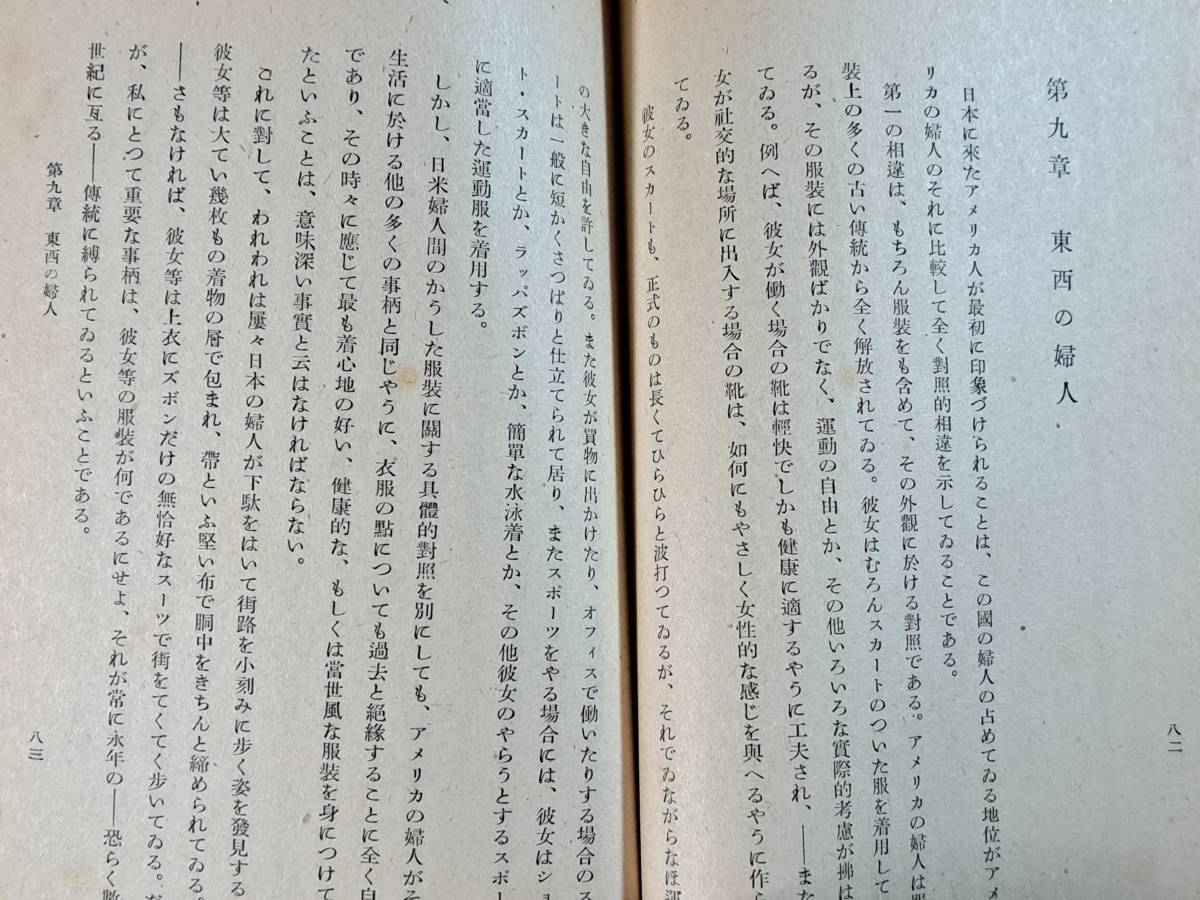 八二
第九章 東西の婦人
日本に來たアメリカ人が最初に印象づけられることは、この國の婦人の占めてゐる地位がアメ
リカの婦人のそれに比較して全く對照的相違を示してゐることである。
第一の相違は、もちろん服裝をも含めて、その外觀に於ける對照である。アメリカの婦人は服
裝上の多くの古い傳統から全く解放されてゐる。彼女はむろんスカートのついた服を着用して
るが、その服裝には外觀ばかりでなく、運動の自由とか、その他いろいろな實際的考慮が拂は
てゐる。例へば、彼女が働く場合の靴は輕快でしかも健康に適するやうに工夫され、――また
女が社交的な場所に出入する場合の靴は、如何にもやさしく女性的な感じを與へるやうに作ら
てゐる。
彼女のスカートも、正式のものは長くてひらひらと波打つてゐるが、それでゐながらなほ運
の大きな自由を許してゐる。また彼女が買物に出かけたり、オフィスで働いたりする場合のス
ートは一般に短かくさつぱりと仕立てられて居り、またスポーツをやる場合には、彼女はショ
ト・スカートとか、ラッパズボンとか、簡單な水泳着とか、その他彼女のやらうとするスポー
に適當した運動服を着用する。
しかし、日米婦人間のかうした服裝に關する具體的對照を別にしても、アメリカの婦人がそ
生活に於ける他の多くの事柄と同じやうに、衣服の點についても過去と絕緣することに全く自
であり、その時々に應じて最も着心地の好い、健康的な、もしくは當世風な服裝を身につけて
たといふことは、意味深い事實と云はなければならない。
これに對して、われわれは屢々日本の婦人が下駄をはいて街路を小刻みに歩く姿を發見する
彼女等は大てい幾枚もの着物の層で包まれ、帶といふ堅い布で胴中をきちんと締められてゐる。
――さもなければ、彼女等は上衣にズボンだけの無恰好なスーツで街をてくてく歩いてゐる。だ
が、私にとつて重要な事柄は、彼女等の服裝が何であるにせよ、それが常に永年の――恐らく數
世紀に亙る――傳統に縛られてゐるといふことである。
第九章 東西の婦人
八三